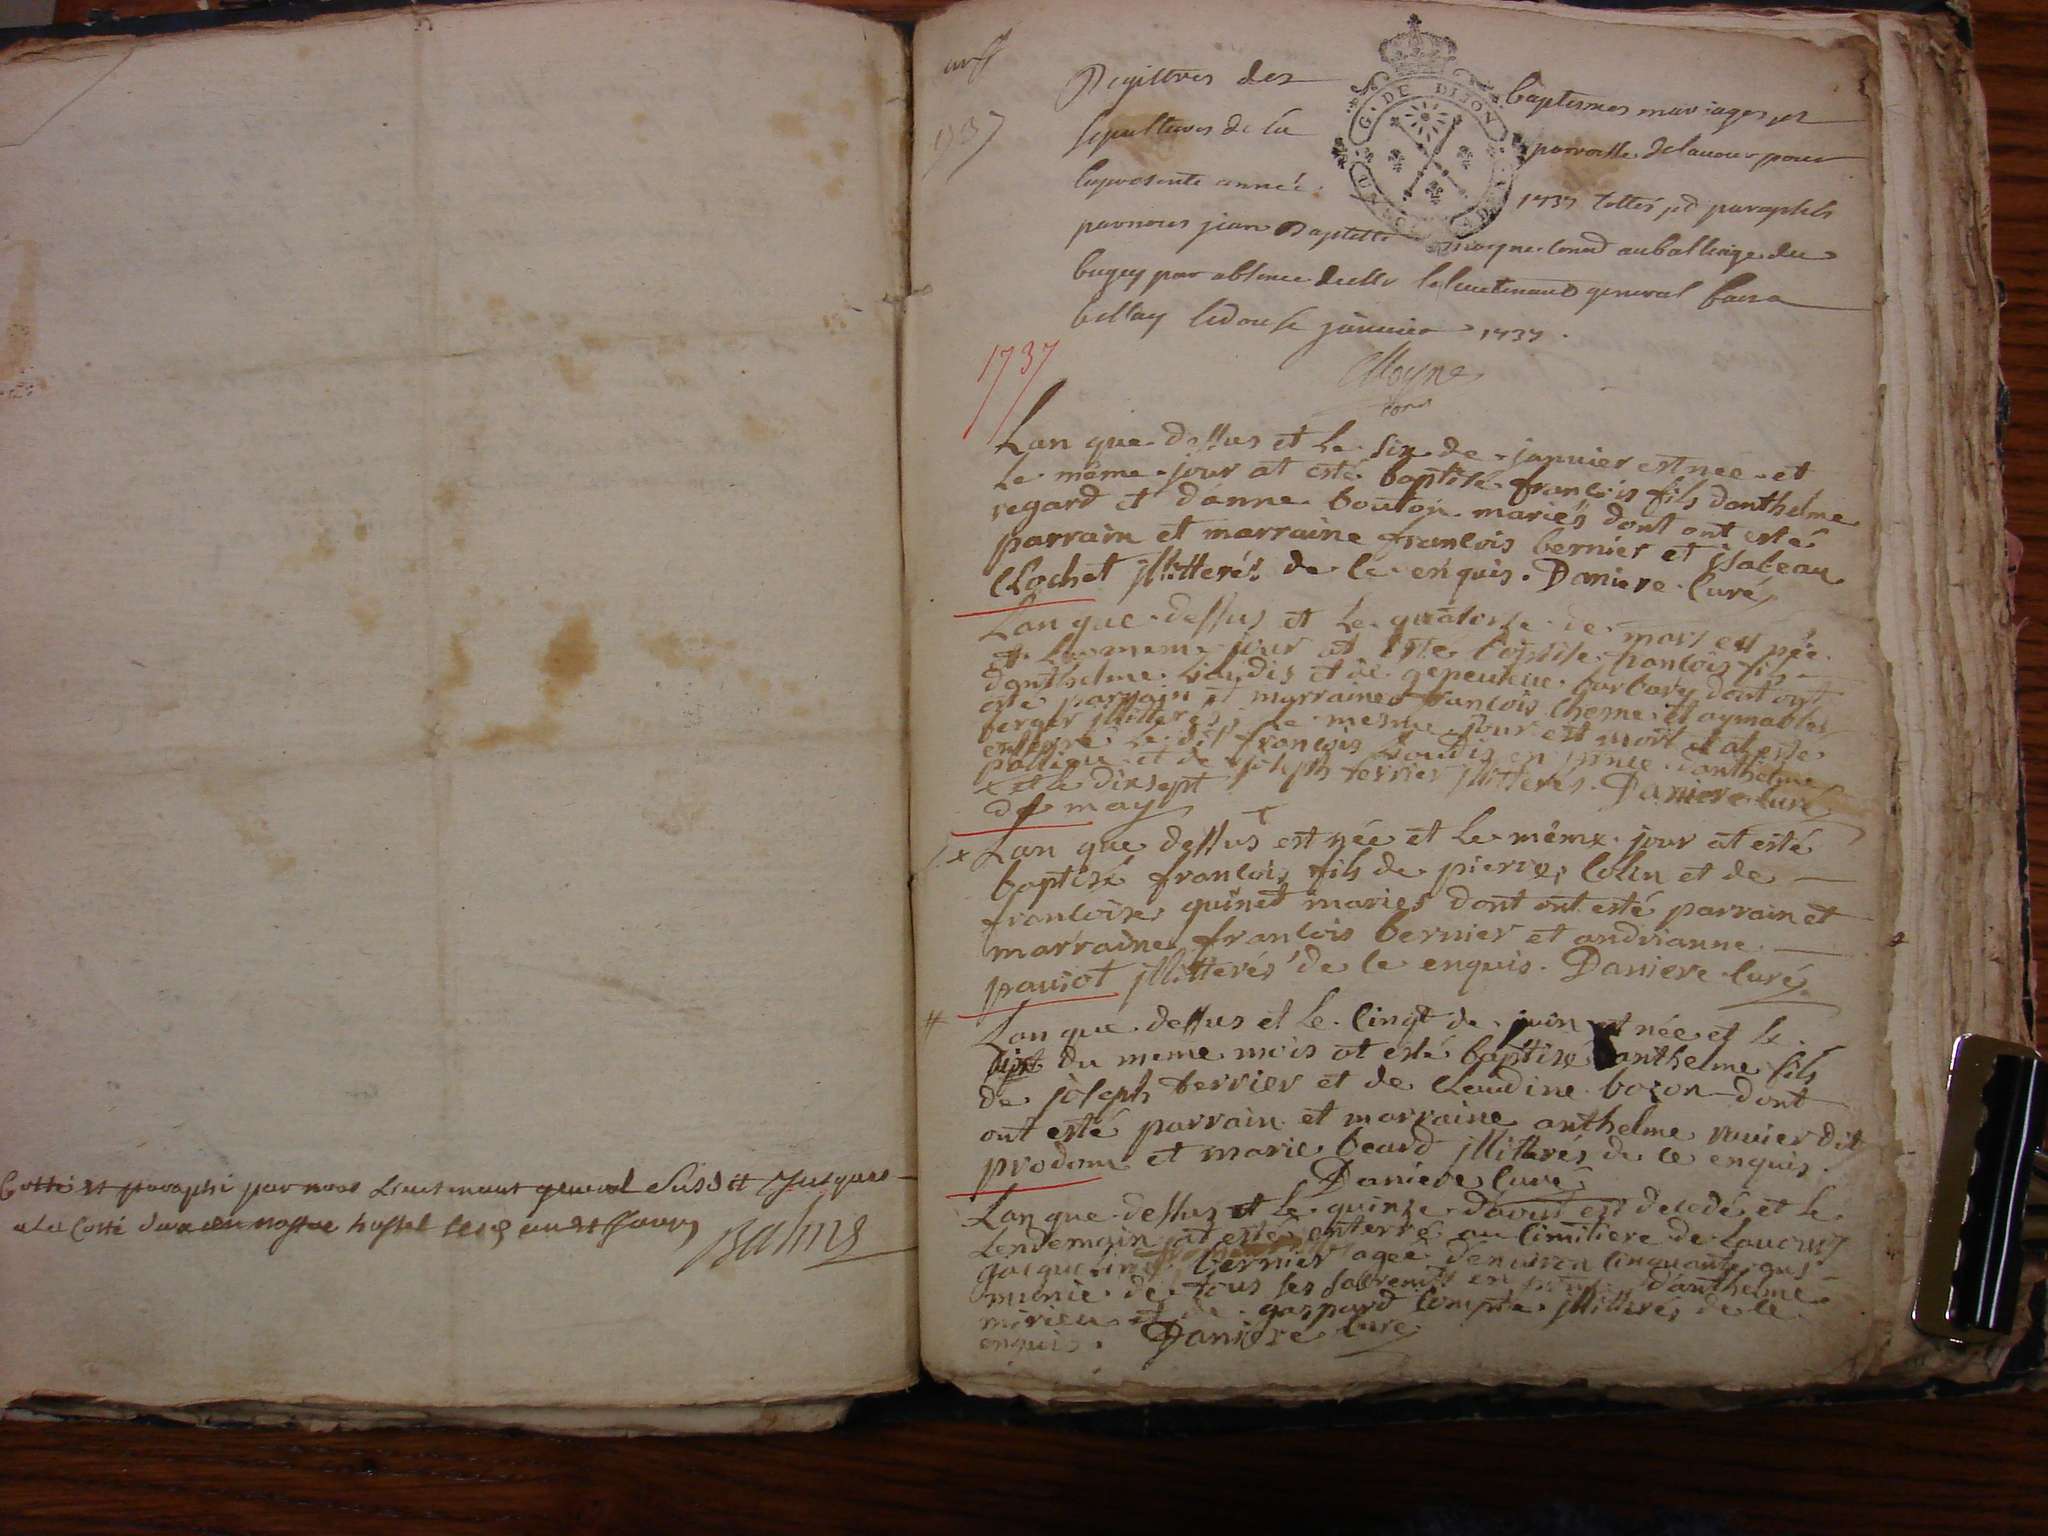 Cotté et paraphé par nous Lieutenant general Susdit Jusques
a la Cotté dans nostre hostel
Balme
1737
Registres des baptesmes mariages et
sepultures de la parroisse de lavour pour
la presente année 1737 Cottés et paraphés
par nous jean Baptiste moyne Cons.r au balliage du
bugey par absence du lieutenant general faict a
bellay le douse janvier 1737.
G. DE DIJON
Moyne
1737
Lan que dessus et le six de janvier est née et
le même jour at esté baptisé françois fils danthelme
regard et d'anne bouton mariés dont ont esté
parrain et marraine françois bernier et isabeau
Clochet jllitterés de ce enquis. Daniere Curé
Lan que dessus et le quatorse de mars est née
et le meme jour at esté baptisé françois fis
danthelme et de barbary dont ont
esté parrain et marraine françois Cherne et aymable
berger jllitteres, le mesme jour est mort et at este
enterré le dit françois en danthelme
et de joseph ferrier jllitterés. Daniere Curé
x et le dixsept
de may
x Lan que dessus est née et le même jour at esté
baptisé françois fils de pierre Colin et de
françoise guinet mariés dont ont esté parrain et
marraine françois bernier et andrianne
paviot jllitterés de ce enquis. Daniere Curé
Lan que dessus et le Cinqt de juin est née et le
sixt du meme mois at esté baptisé anthelme fils
de joseph ferrier et de Claudine bozon dont
ont esté parrain et marraine anthelme ruvier dit
prodom et marie beard jllitterés de ce enquis.
Daniere Curé
Lan que dessus et le quinse d'aoust est decedé et le
Lendemain at esté enterré au Cimitiere de Lavour
jacqueline bernier agee denviron Cinquante ans
munie de tous ses sacremts en danthelme
mirieu et de gaspard Compte jllitterés de ce
enquis. Daniere Curé